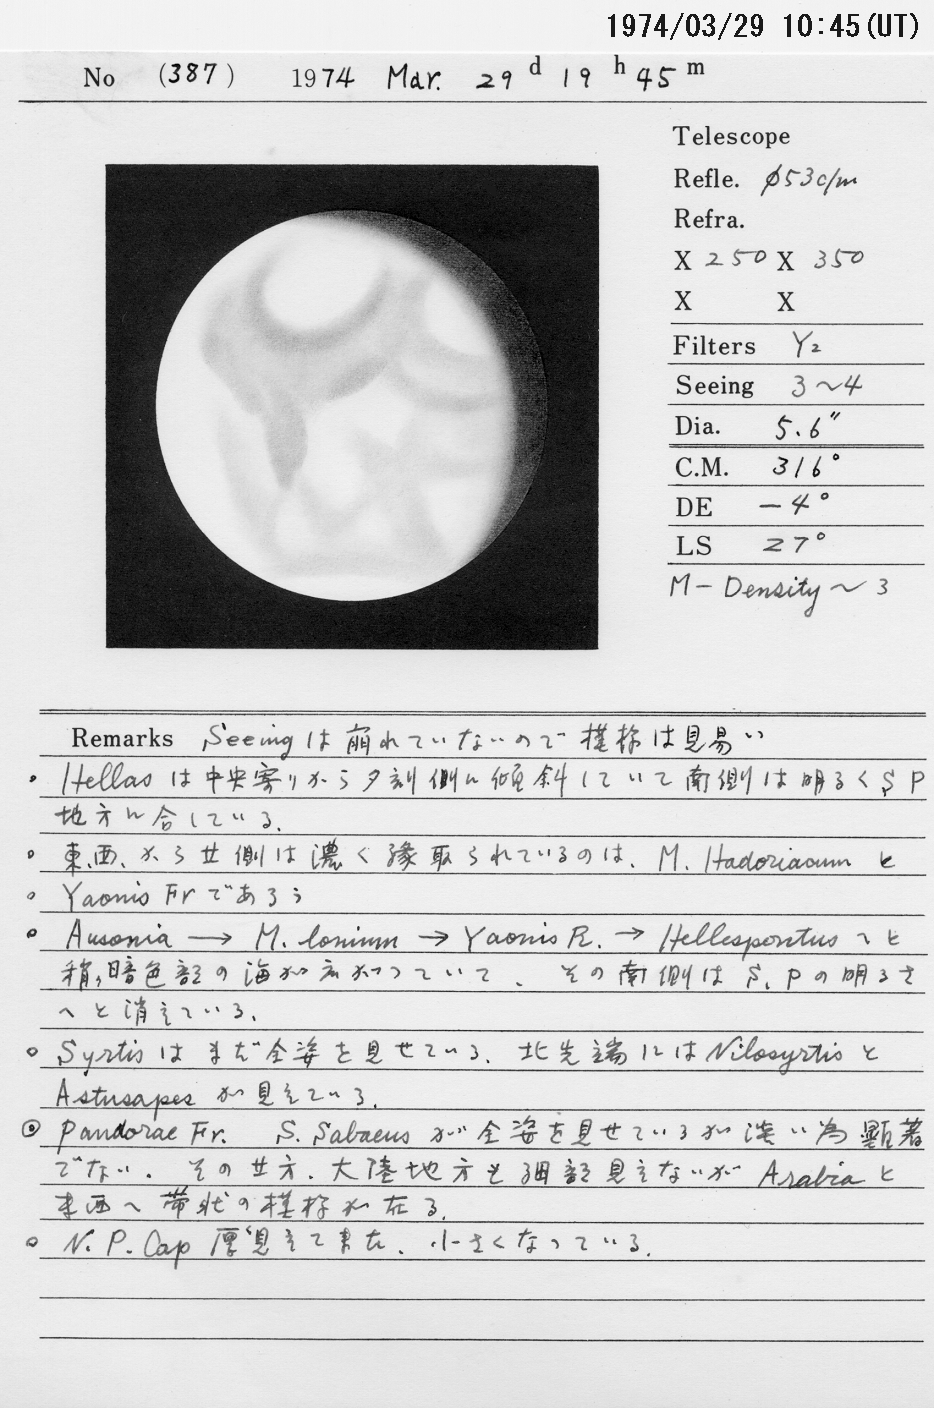 1974/03/29 10:45(UT)
No (387) 1974 Mar. 29 d 19 h 45 m
Telescope
Refle. φ53c/m
Refra.
X 250 X 350
X X
Filters Y2
Seeing 3~4
Dia. 5.6"
C.M. 316°
DE -4°
LS 27°
M-Density~3
Remarks Seeingは崩れていないので模様は見易い
• Hellasは中央寄りから夕刻側に傾斜していて南側は明るくS P
地方に合している.
。東、西、から北側は濃く縁取られているのは、M. Hadoriacum と
。Yaonis Fr であろう
。Ausonia → M. Ionium → Yaonis R. → Hellespontus へと
稍々暗色部の海が広がっていて、その南側は S. P の明るさ
へと消えている.
。Syrtis はまだ全姿を見せている. 北先端にはNilosyrtis と
Astusapes が見えている.
◎ Pandorae Fr. S. Sabaeus が全姿を見せているが淡い為顕著
でない. その北方、大陸地方も細部見えないが Arabia と
東西へ帯状の模様が在る.
。N. P. Cap 見えて来た、小さくなっている.